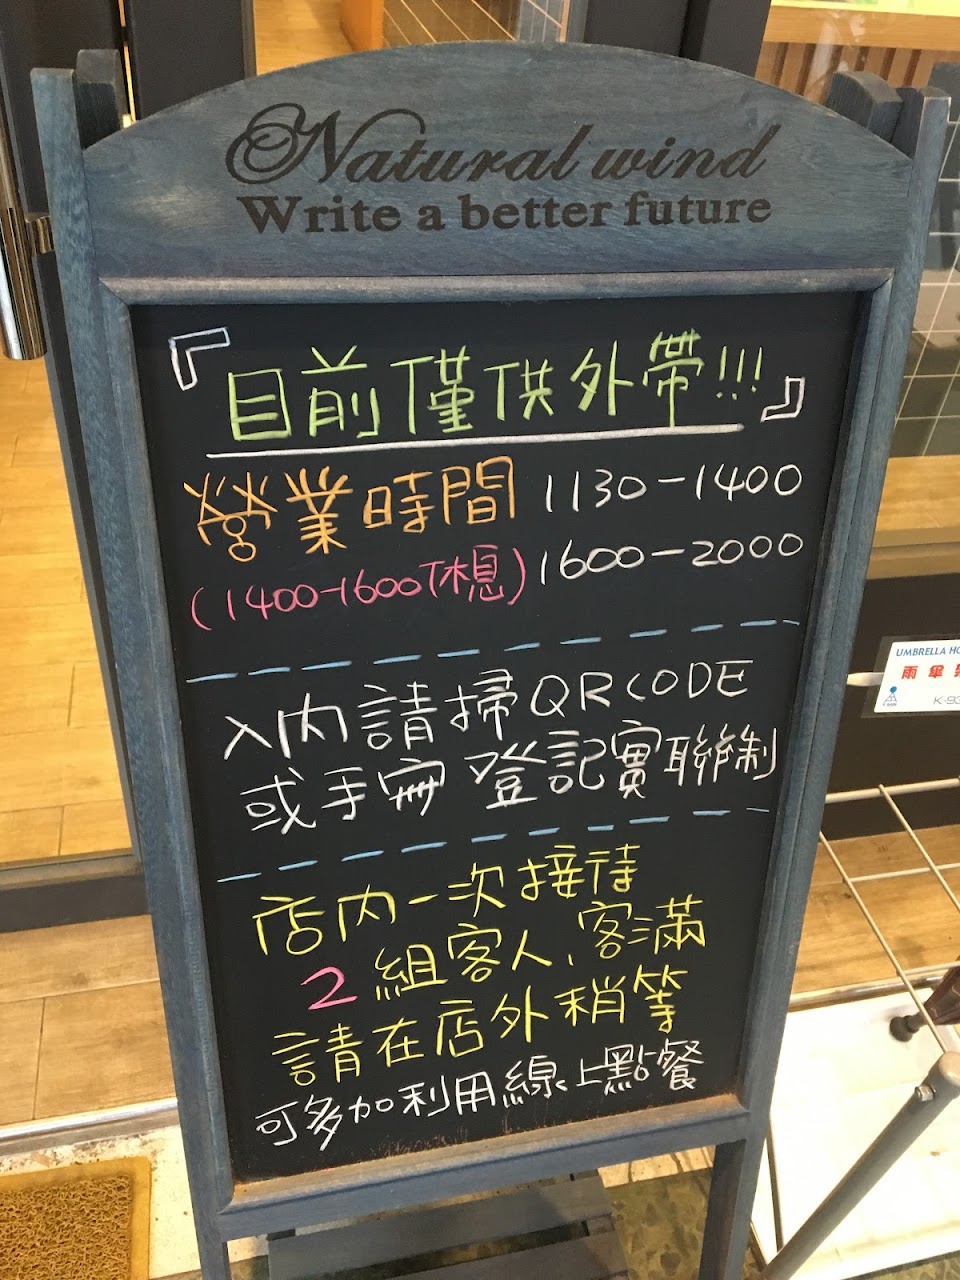 Natural wind
Write a better future
『目前僅供外帶!!!』
營業時間 1130-1400
(1400-1600休息) 1600-2000
入內請掃QRCODE
或手寫登記實聯制
店內一次接待
2組客人、客滿
請在店外稍等
可多加利用線上點餐
UMBRELLA HO
雨傘